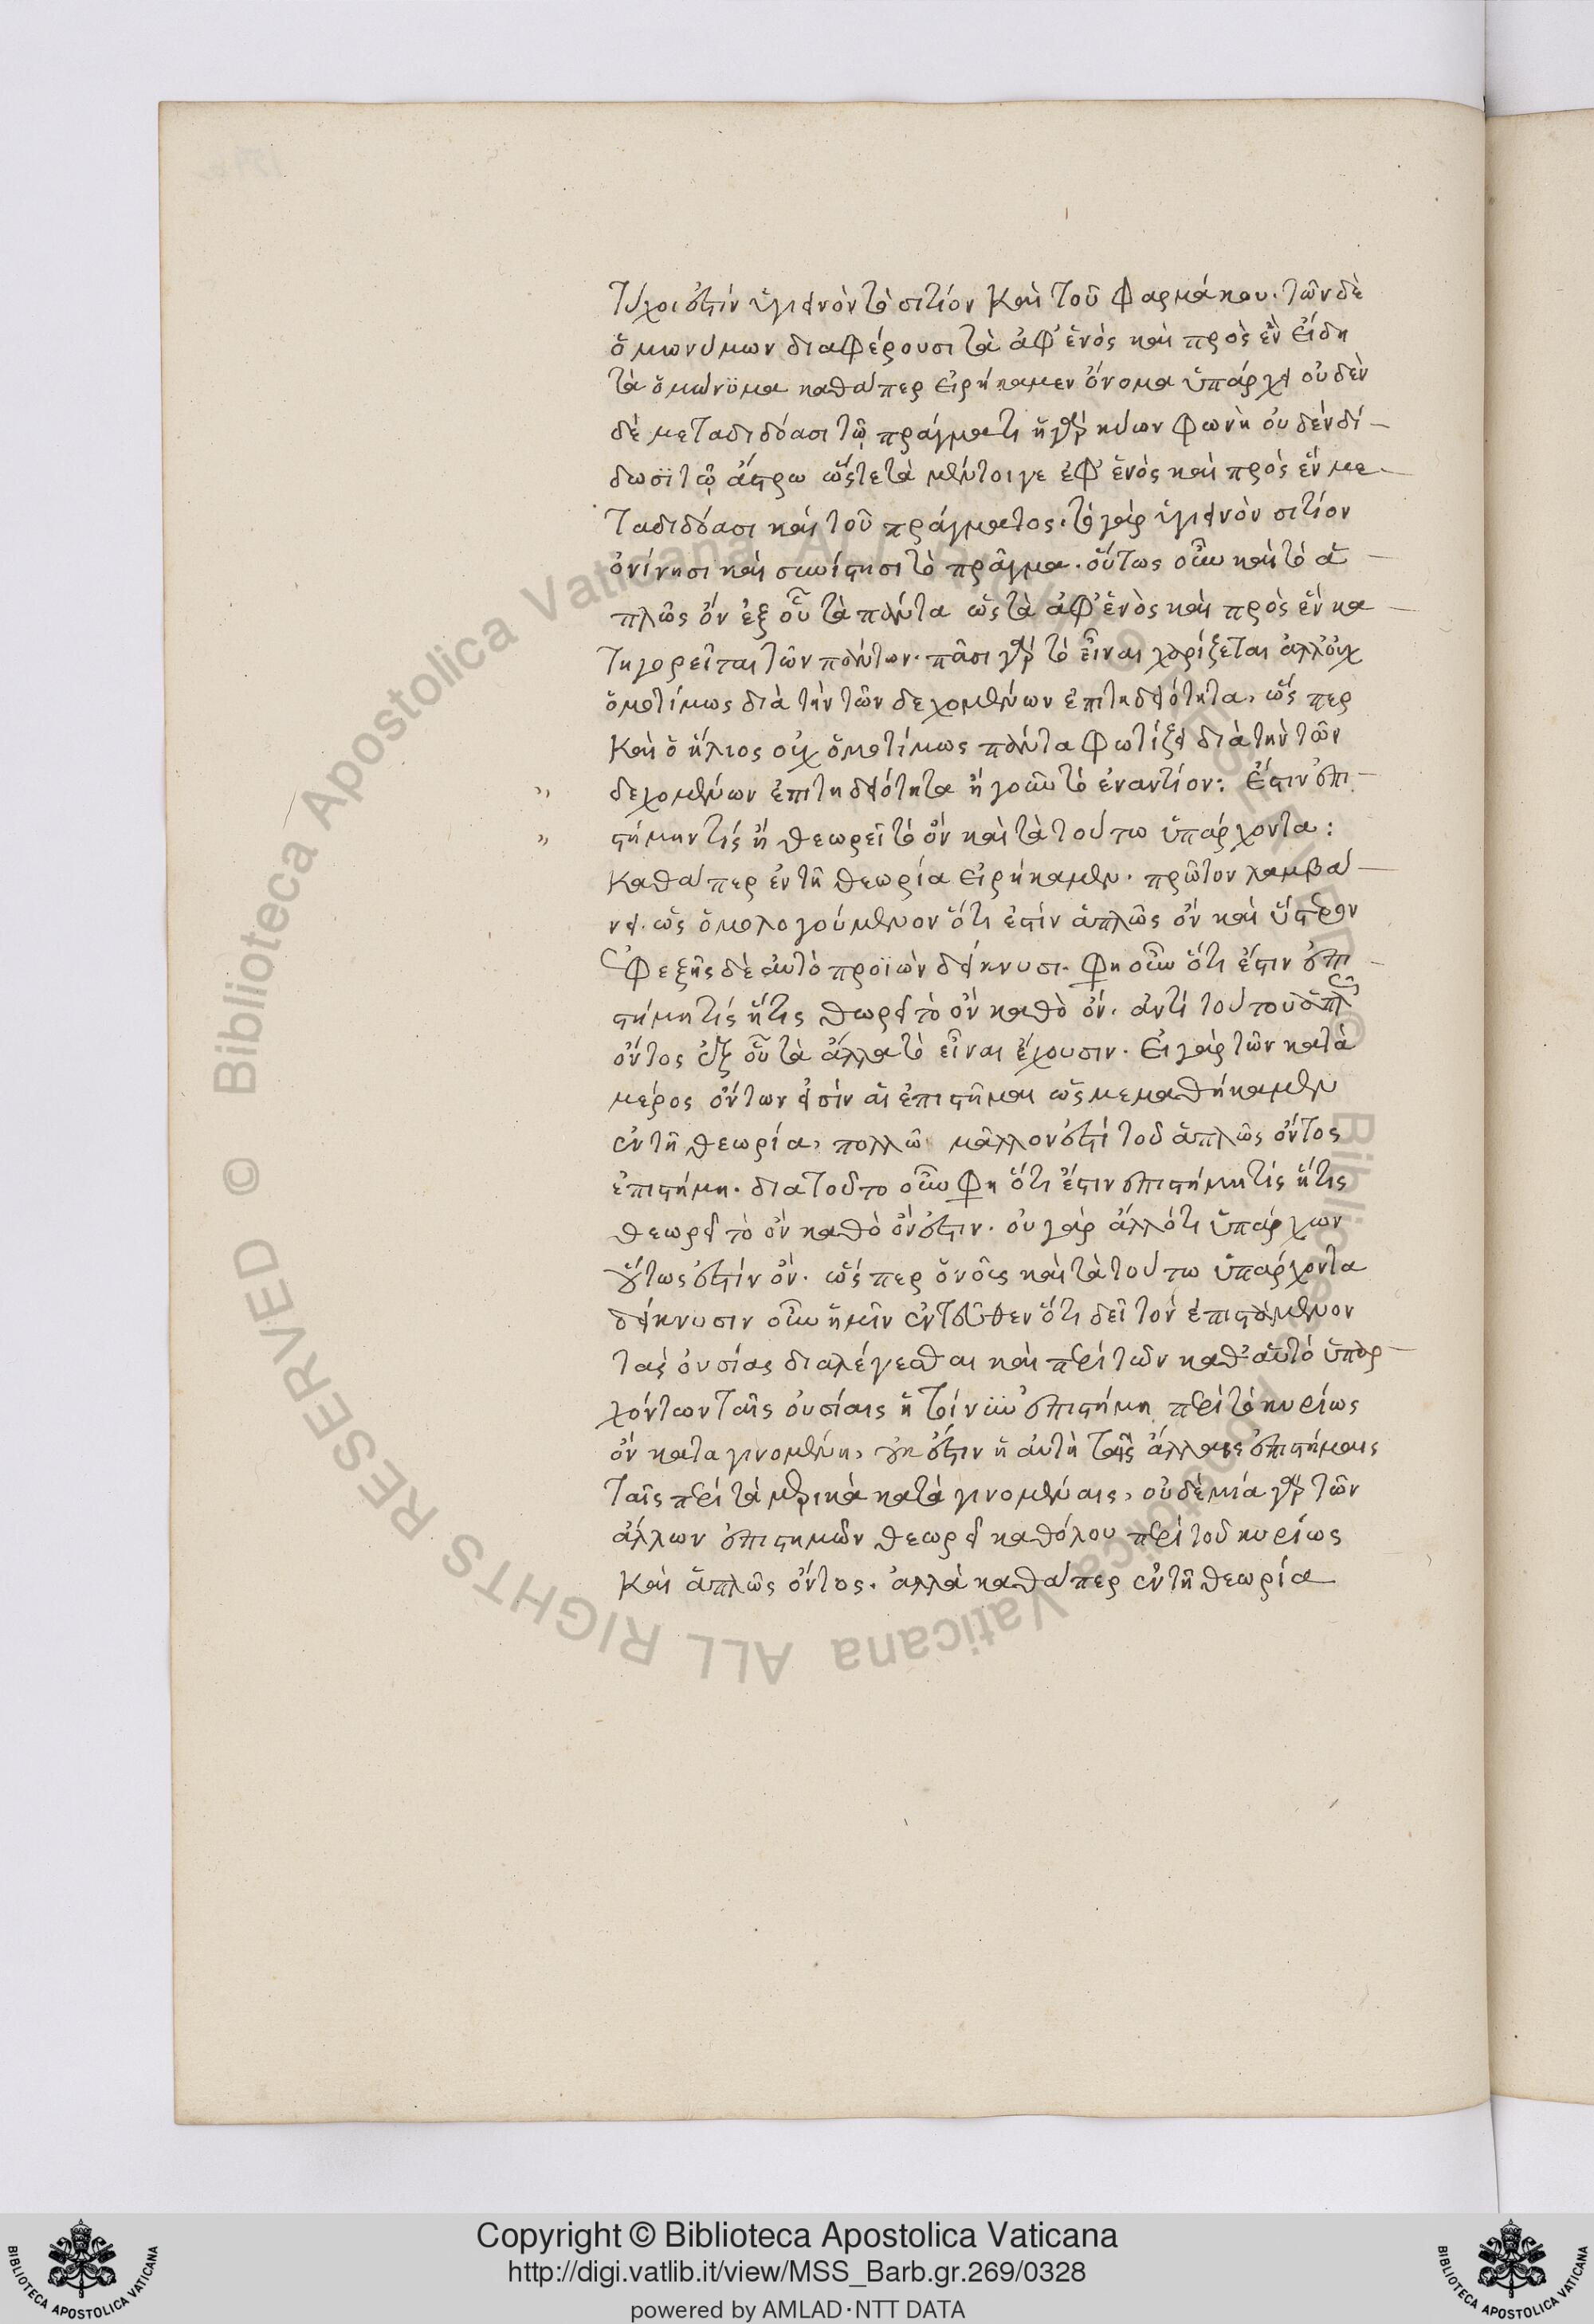 τύχοι ἐστὶν ὑγιεινὸν τὸ σιτίον καὶ τοῦ φαρμάκου. τῶν δὲ
ὁμωνύμων διαφέρουσι τὰ ἀφ' ἑνὸς καὶ πρὸς ἓν εἴδη
τὰ ὁμώνϋμα καθάπερ εἰρήκαμεν ὄνομα ὑπάρχει οὐδὲν
δὲ μεταδιδόασι τῷ πράγματι ἡ γὰρ κύων φωνὴ οὐδὲν δί-
δωσϊ τῷ ἄστρω ὥστε τὰ μέντοιγε ἐφ' ἑνὸς καὶ πρὸς ἓν με-
ταδιδόασι καὶ τοῦ πράγματος. τὸ γὰρ ὑγιεινὸν σιτίον
ὀνίνησι καὶ συνίστησι τὸ πρᾶγμα. οὕτως οὖν καὶ τὸ ἁ-
πλῶς ὂν ἐξ οὗ τὰ πάντα ὡς τὰ ἀφ' ἑνὸς καὶ πρὸς ἓν κα-
τηγορεῖται τῶν πάντων. πᾶσι γὰρ τὸ εἶναι χορίζεται ἀλλ' οὐχ
ὁμοτίμως διὰ τὴν τῶν δεχομένων ἐπιτηδειότητα, ὥς περ
καὶ ὁ ἥλιος οὐχ ὁμοτίμως πάντα φωτίζει διὰ τὴν τῶν
" δεχομένων ἐπιτηδειότητα ἢ γοῦν τὸ ἐναντίον: ἔστιν ἐπι-
" στήμην τίς ἢ θεωρεῖ τὸ ὂν καὶ τὰ τούτω ὑπάρχοντα:
καθάπερ ἐν τῇ θεωρία εἰρήκαμεν. πρῶτον λαμβά-
νει. ὡς ὁμολογούμενον ὅτι ἐστὶν ἁπλῶς ὂν καὶ ὕστερον
ἐφεξῆς δὲ αὐτὸ προϊὼν δείκνυσι. φη οὖν ὅτι ἔστιν ἐπι-
στήμη τίς ἥτις θωρεῖ τὸ ὂν καθὸ ὄν. ἀντὶ τοῦ τοῦ ἁπλῶς
ὄντος ἐξ οὗ τὰ ἄλλα τὸ εἶναι ἔχουσιν. εἰ γὰρ τῶν κατὰ
μέρος ὄντων εἰσὶν αἱ ἐπιστῆμαι ὡς μεμαθήκαμεν
ἐν τῇ θεωρία, πολλῶ μᾶλλον ἐστὶ τοῦ ἁπλῶς ὄντος
ἐπιστήμη. διατοῦτο οὖν φη ὅτι ἔστιν ἐπιστήμη τίς ἥτις
θεωρεῖ τὸ ὂν καθὸ ὄν ἐστιν. οὐ γὰρ ἄλλό τι ὑπάρχων
οὕτως ἐστὶν ὄν. ὥς περ ὁ νοῦς καὶ τὰ τούτω ὑπάρχοντα
δείκνυσιν οὖν ἡμῖν ἐντεῦθεν ὅτι δεῖ τὸν ἐπιστάμενον
τὰς οὐσίας διαλέγεσθαι καὶ περὶ τῶν καθ' αὑτὸ ὑπαρ-
χόντων ταῖς οὐσίαις ἡ τοίνυν ἐπιστήμη περὶ τὸ κυρίως
ὂν καταγινομένη, οὐκ ἔστιν ἡ αὐτὴ ταῖς ἄλλαις ἐπιστήμαις
ταῖς περὶ τὰ μερικὰ κατὰ γινομέναις, οὐδὲ μία γὰρ τῶν
ἄλλων ἐπιστημῶν θεωρεῖ καθόλου περὶ τοῦ κυρίως
καὶ ἁπλῶς ὄντος. ἀλλὰ καθάπερ ἐν τῇ θεωρία
Copyright © Biblioteca Apostolica Vaticana
http://digi.vatlib.it/view/MSS_Barb.gr.269/0328
powered by AMLAD·NTT DATA